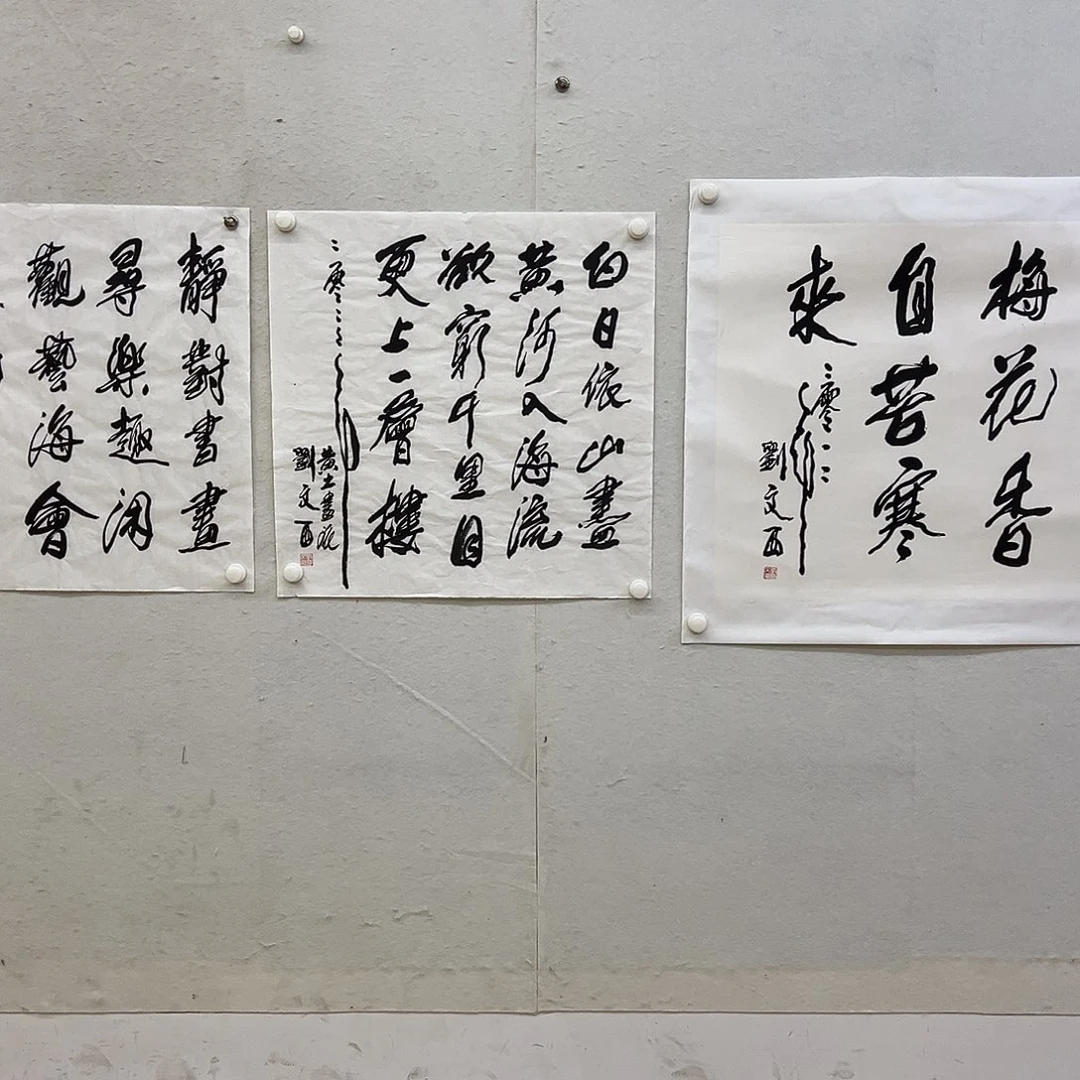 梅花香
自苦寒
來
二零
劉文西
白日依山盡
黄河入海流
欲窮千里目
更上一層樓
二零
黄土畫派
劉文西
靜對書畫
尋樂趣閑
觀藝海會